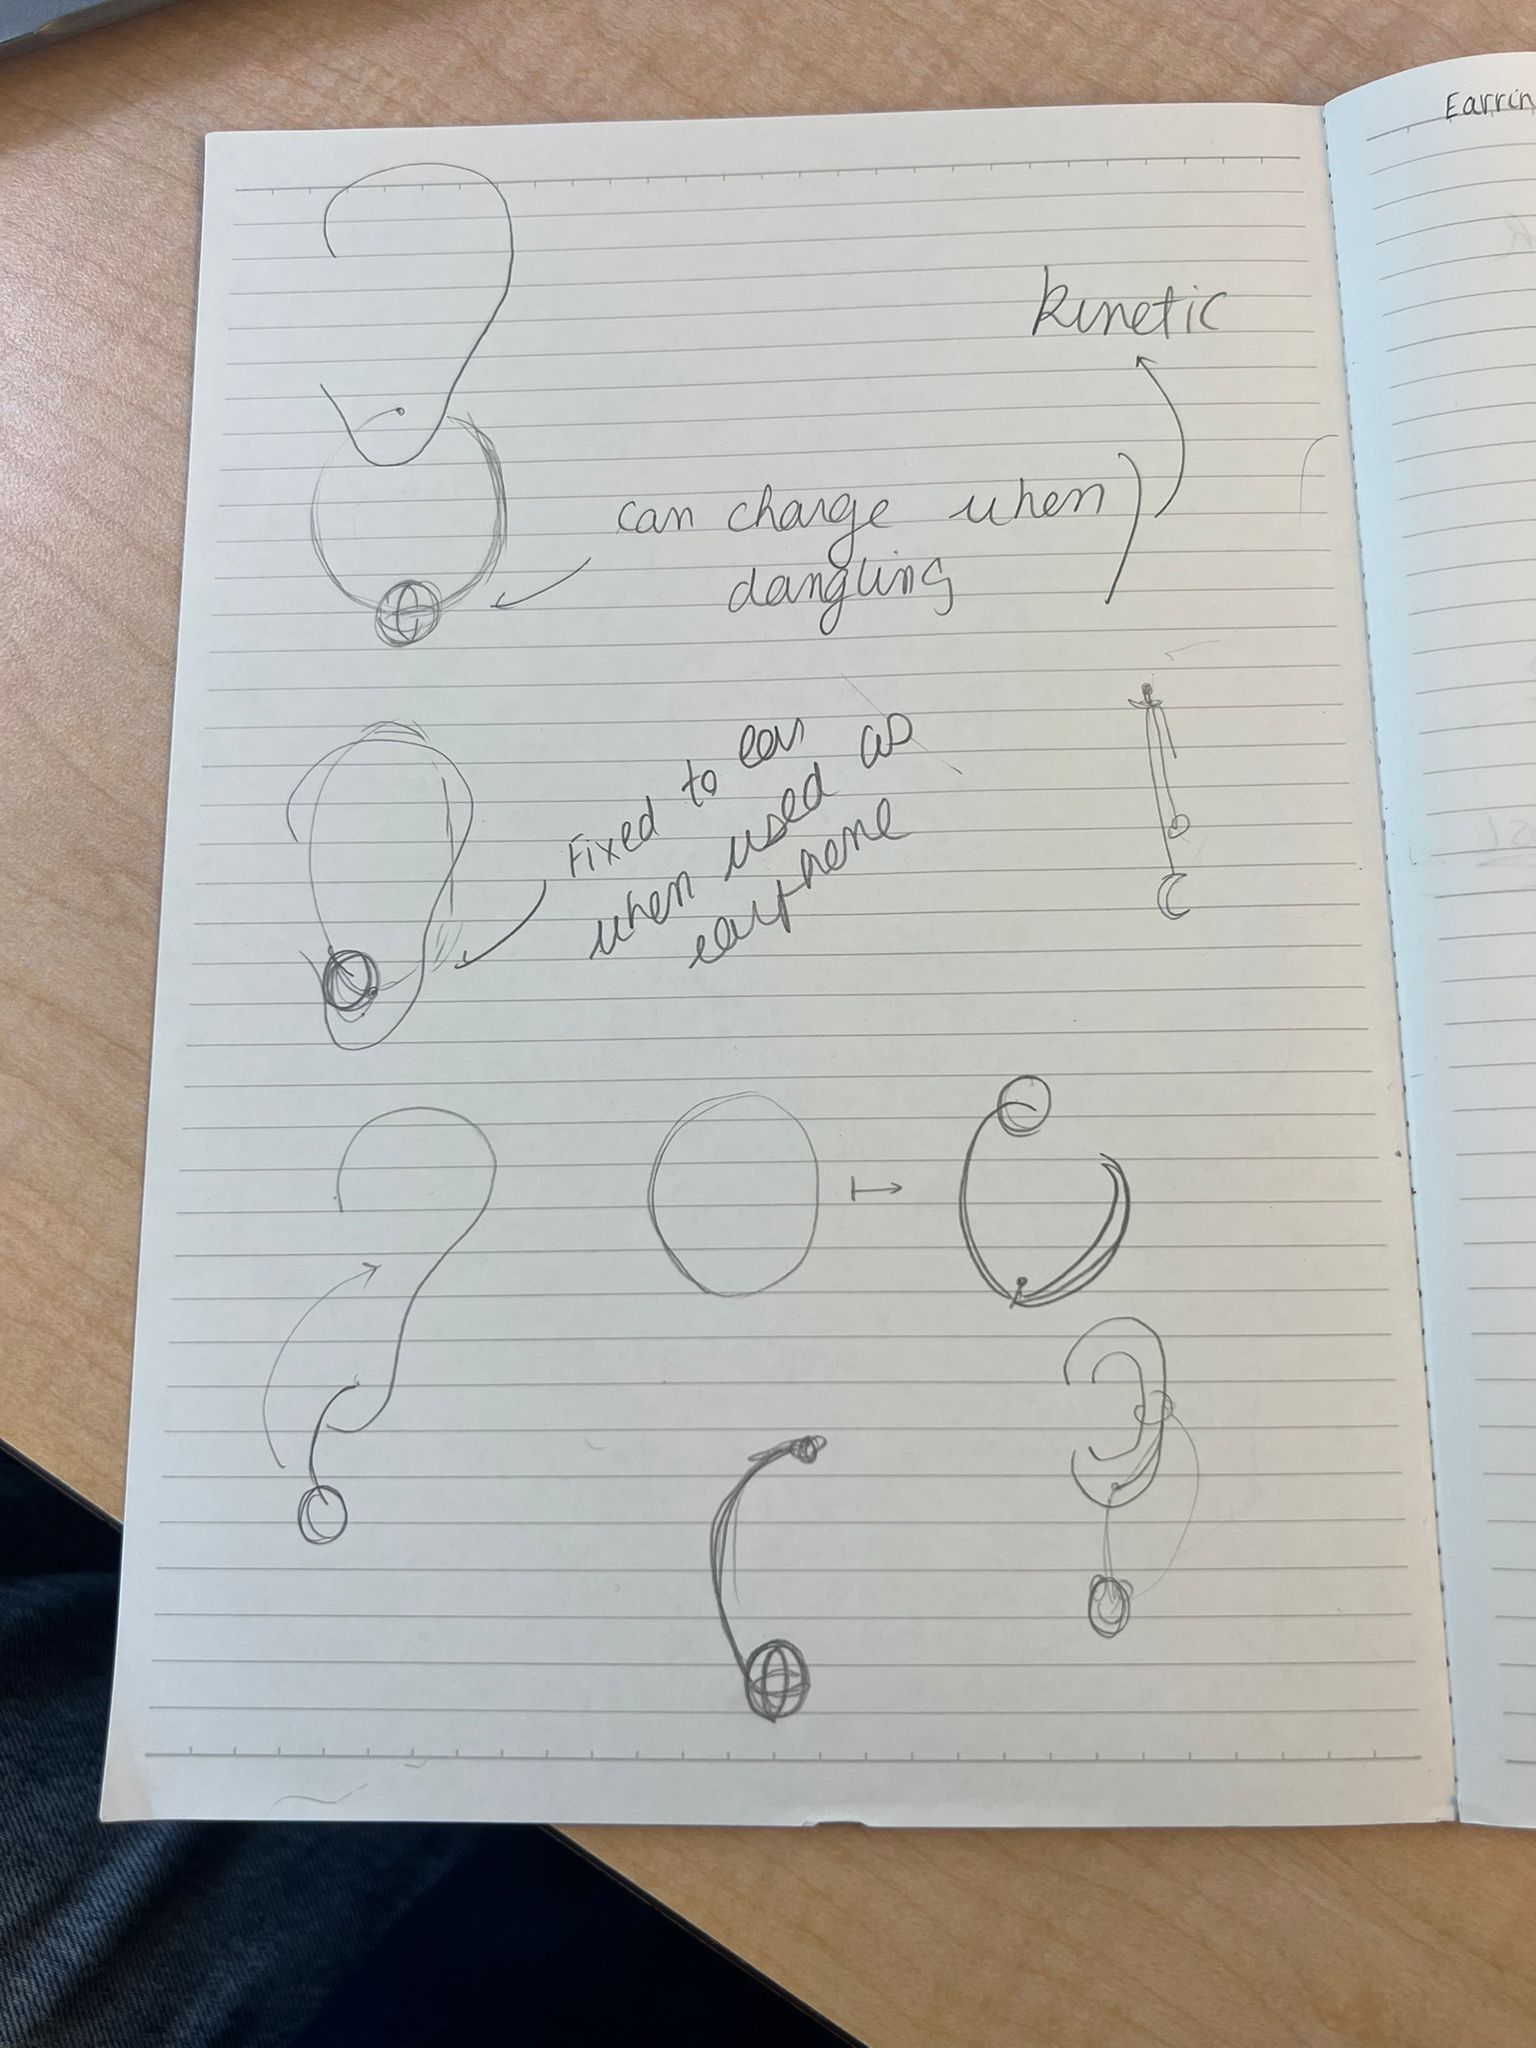 Earrin
kinetic
can charge when
dangling
Fixed to ear
when used as
earphone